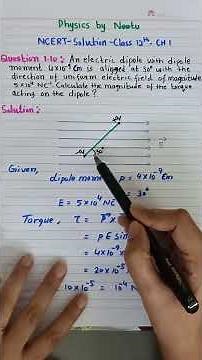 Physics by Neetu
NCERT-Solution-Class 12th- CH 1
Question 1.10: An electric dipole with dipole
moment 4x10⁻⁹ Cm is aligned at 30° with the
direction of uniform electric field of magnitude
5x10⁴ NC⁻¹. Calculate the magnitude of the torque
acting on the dipole?
Solution:
30°
Given,
dipole moment p = 4x10⁻⁹ Cm
30°
E = 5x10⁴ NC
Torque, τ =
= pE sin
= 4x10⁻⁹ x
= 20x10⁻⁵
10x10⁻⁵ = 10⁻⁴ N